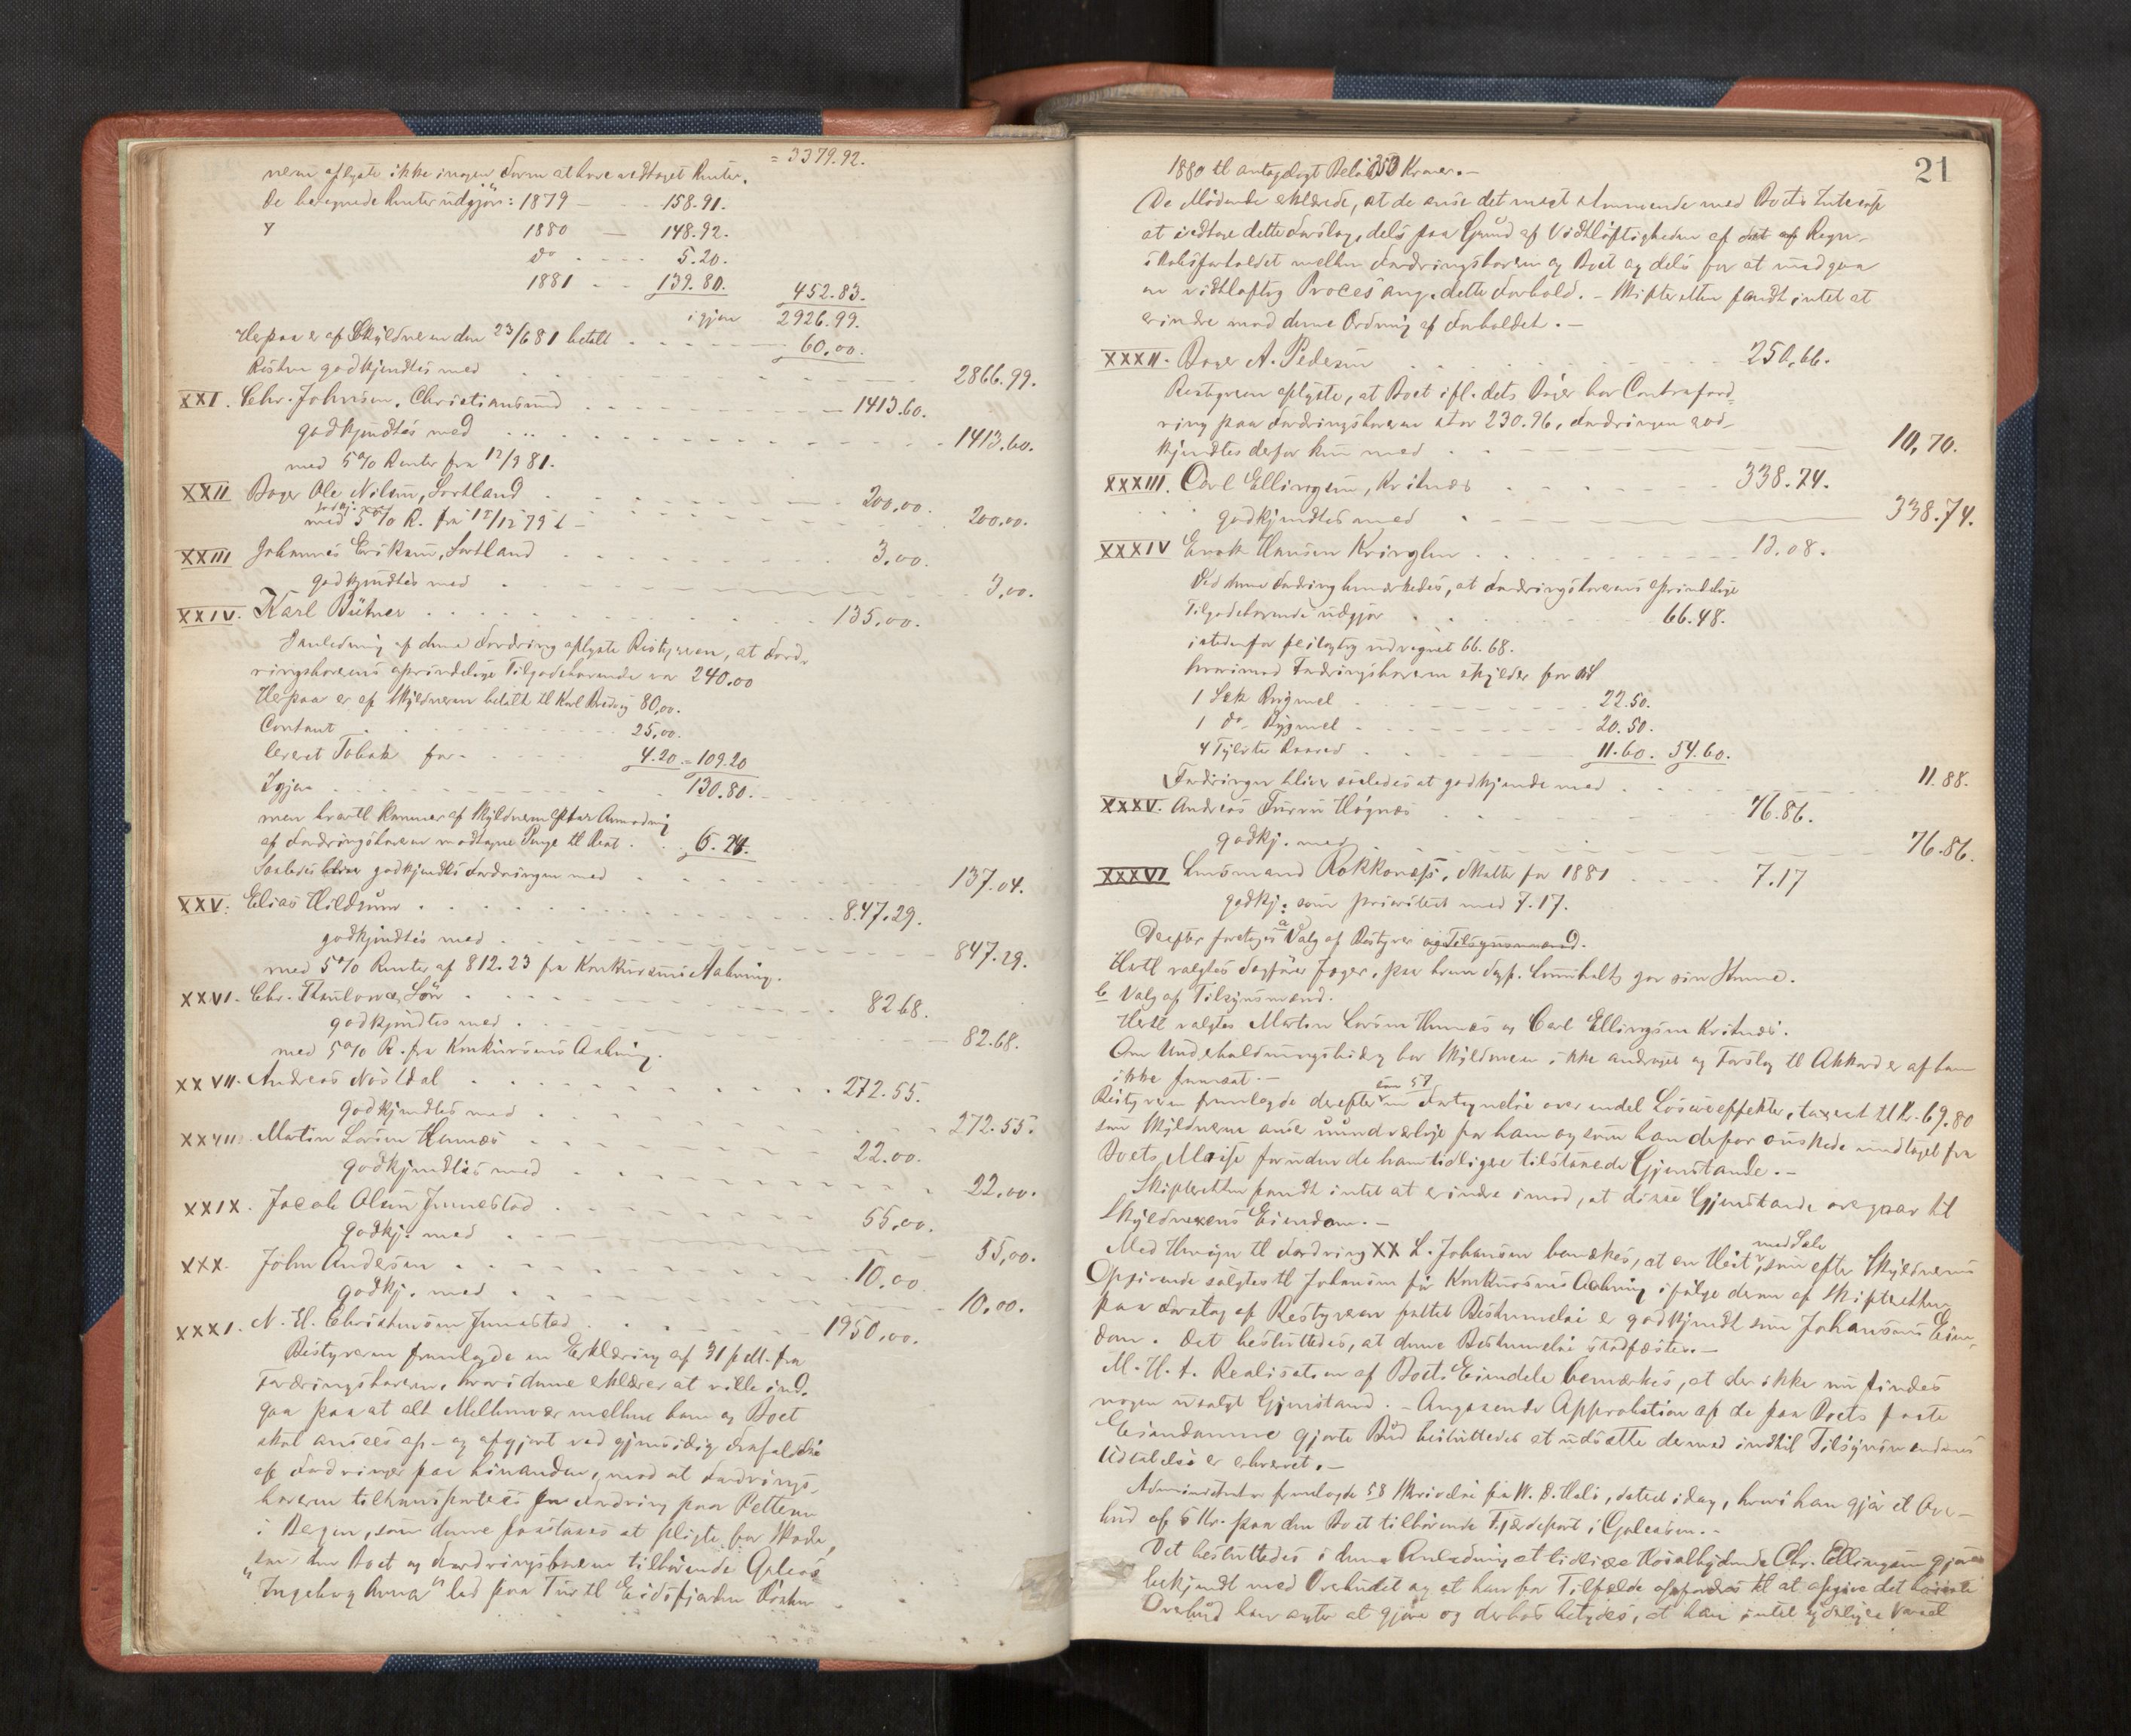 = 3379.92.
neren oplyste ikke nogen Form at have vedtaget Renter.
De beregnede Renter udgjør: 1879 — 158.91.
1880 — 148.92.
do . . . . 5.20.
1881 . . 139.80. 452.83.
igjen 2926.99.
Herpaa er af Skyldneren den 23/6 81 betalt . . . . 60,00.
Resten godkjendtes med . . . 2866.99.
XXI. Chr. Johnsen, Christiansund . . . 1413.60.
godkjendtes med . . . 1413.60.
med 5% Renter fra 12/9 81.
XXII Boger Ole Nilsen, Sortland . . . 200,00.
godkj. med 5% R. fra 15/12 79 . . . 200,00.
XXIII Johannes Eriksen, Sortland . . . 3,00.
godkjendtes med . . . 3,00.
XXIV. Karl Bütner . . . 135,00.
I Anledning af denne Fordring oplyste Bestyreren, at Ford-
ringshaverens oprindelige Tilgodehavende var 240.00
Herpaa er af Skyldneren betalt til Karl 80,00.
Contant . . . 25,00.
leveret Tobak for . . . 4.20 = 109.20
Igjen . . . 130.80.
men hvortil kommer af Skyldneren efter Anmodning
af Fordringshaveren modtagne Penge til Rest . . 6.24.
Saaledes bliver godkjendtes Fordringen med . . . 137.04.
XXV. Elias Hildrum . . . 847.29.
godkjendtes med . . . 847.29.
med 5% Renter af 812.23 fra Konkursens Aabning.
XXVI. Chr. Søn . . . 82.68.
godkjendtes med . . . 82.68.
med 5% R. fra Konkursens Aabning.
XXVII. Andreas Nøstdal . . . 272.55.
godkjendtes med . . . 272.55.
XXVIII. Martin Larsen Hennes . . . 22.00.
godkjendtes med . . . 22,00.
XXIX. Jacob Olsen Jennestad . . . 55,00.
godkj. med . . . 55,00.
XXX. John Andersen . . . 10,00
godkj. med . . . 10,00.
XXXI. N. H. Christensen Jennestad . . . 1950,00.
Bestyreren fremlagde en Erklæring af 31 f. M. fra
Fordringshaveren, hvori denne erklærer at ville ind-
gaa paa at alt Mellemvær mellem ham og Boet
skal ansees op- og afgjort ved gjensidig Frafaldelse
af Fordringer paa hinanden, mod at Fordrings-
haveren tiltransporteres Fordring paa
i Bergen, som denne paastaaes at pligte for Skade,
som den Boet og Fordringshaveren tilhørende Galeas
"Ingeborg Anna" led paa Tur til Eidsfjorden Høsten
21
1880 til antageligt Beløb 250 Kroner. —
De Mødende erklærede, at de anse det mest stemmende med Boets Interesse
at vedtage dette Forslag, dels paa Grund af Vidtløftigheden af det af Regn-
skabsforholdet mellem Fordringshaveren og Boet og dels for at undgaa
en vidtløftig Proces ang. dette Forhold. — Skifteretten fandt intet at
erindre mod denne Ordning af Forholdet. —
XXXII. Boger A. Pedersen . . . 250,66.
Bestyreren oplyste, at Boet ifl. dets Bøger har Contraford-
ring paa Fordringshaveren stor 230.96, Fordringen god-
kjendtes derfor kun med . . . 10,70.
XXXIII. Carl Ellingsen, Kritnes . . . 338.74.
godkjendtes med . . . 338.74.
XXXIV Enok Hansen . . . 13.08.
Ved denne Fordring bemærkedes, at Fordringshaverens oprindelige
Tilgodehavende udgjør . . . 66.48.
istedenfor feilagtig udregnet 66.68.
hvorimod Fordringshaveren skylder for
1 Sæk Rugmel . . . 22.50.
1 do Bygmel . . . 20.50.
4 Tylvter . . . 11.60. 54.60.
Fordringen bliver saaledes at godkjende med . . . 11.88.
XXXV. Andreas Høgnæs . . . 76.86.
godkj. med . . . 76.86.
XXXVI Lensmand Rokkones, Skatter for 1881 . . . 7.17
godkj. som prioriteret med 7.17.
Derefter foretoges a Valg af Bestyrer og Tilsynsmænd.
Hertil valgtes Sagfører Jæger, paa hvem Sagf. Lumholtz gav sin Stemme.
b Valg af Tilsynsmænd.
Hertil valgtes Martin Larsen Hennes og Carl Ellingsen Kritnæs.
Om Underholdningsbidrag har Skyldneren ikke andraget og Forslag til Akkord er af ham
ikke fremsat. —
Bestyreren fremlagde derefter som 57 en Fortegnelse over endel Løsøreeffekter, taxeret til Kr. 69.80
som Skyldneren anser uundværlige for ham og som han derfor ønskede undtaget fra
Boets Masse foruden de ham tidligere tilstaaede Gjenstande. —
Skifteretten fandt intet at erindre imod, at disse Gjenstande overgaar til
Skyldnerens Eiendom. —
Med Hensyn til Fordring XX L. Johansen bemærkes, at en Hest med Sele, som efter Skyldnerens
Opgivende solgtes til Johansen før Konkursens Aabning ifølge derom af Skifteretten
paa Forslag af Bestyreren fattet Bestemmelse er godkjendt som Johansens Eien-
dom. Det besluttedes, at denne Bestemmelse stadfæstes. —
M. H. t. Realisation af Boets Eiendele bemærkes, at der ikke nu findes
nogen usolgt Gjenstand. — Angaaende Approbation af de paa Boets faste
Eiendomme gjorte Bud besluttedes at udsætte dermed indtil Tilsynsmændenes
Udtalelse er erhvervet. —
Administrator fremlagde 58 Skrivelse fra W. D. Hals, dateret idag, hvori han gjør et Over-
bud af 5 Kr. paa den Boet tilhørende Fjerdepart i Galeasen. —
Det besluttedes i denne Anledning at tidligere Høistbydende Chr. Ellingsen gjøres
bekjendt med Overbudet og at han for Tilfælde opfordres til at afgive det høieste
Overbud han agter at gjøre og derhos betydes, at han intet yderligere Varsel